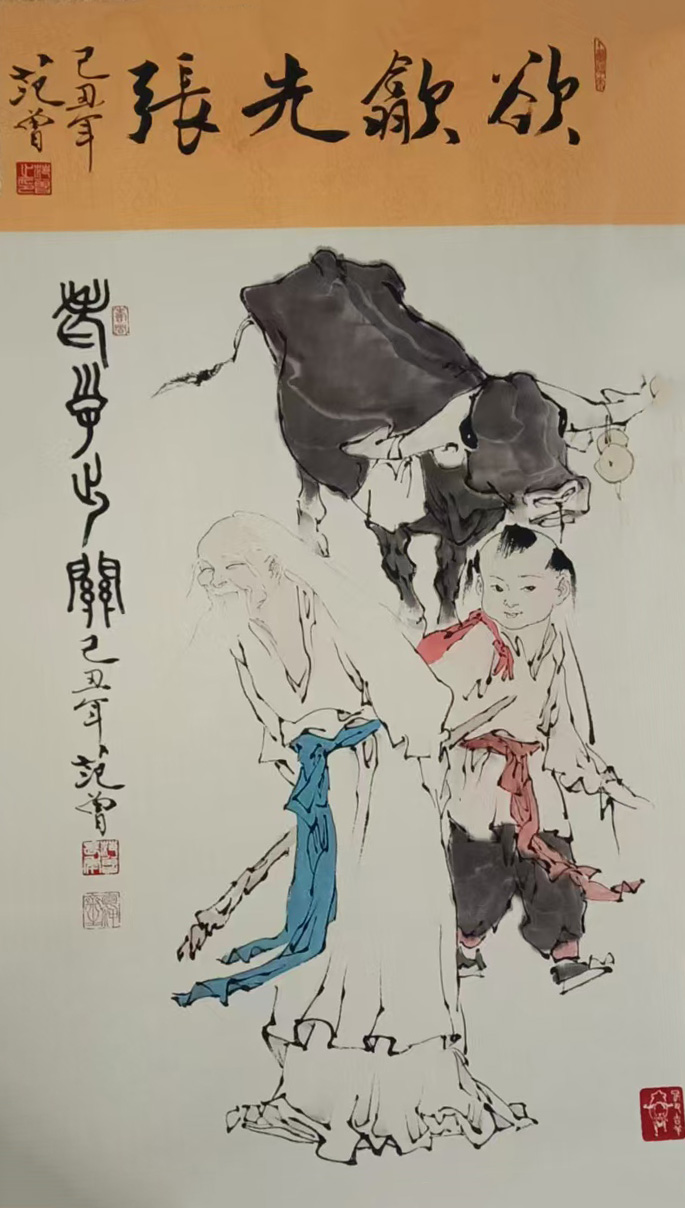 欲歙先張
己丑年
范曾
老子出關己丑年范曾